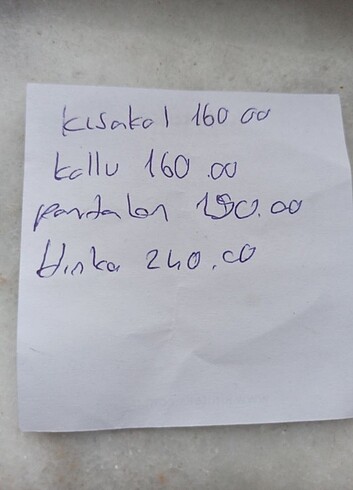 kısakol 160 00
kollu 160.00
pantalon 190.00
240.00